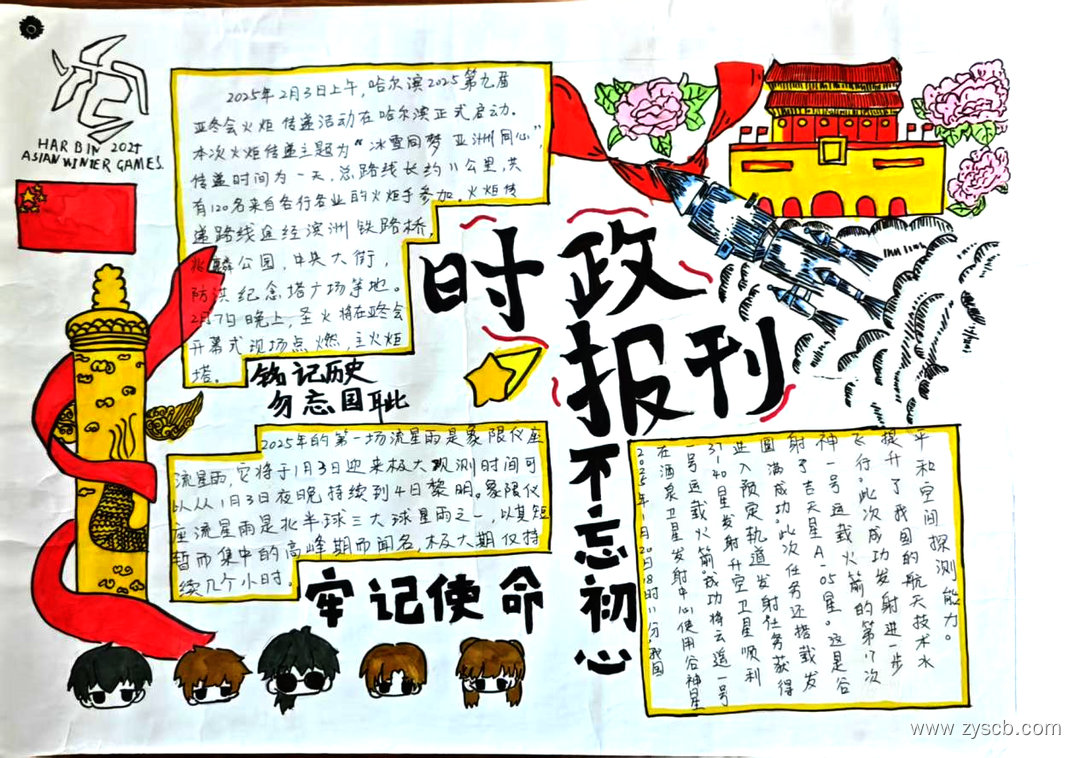 HARBIN 2025
ASIAN WINTER GAMES
2025年2月3日上午，哈尔滨2025第九届
亚冬会火炬传递活动在哈尔滨正式启动。
本次火炬传递主题为“冰雪同梦 亚洲同心”，
传递时间为一天，总路线长约11公里，共
有120名来自各行各业的火炬手参加。火炬传
递路线途经滨洲铁路桥，
兆麟公园，中央大街，
防洪纪念塔广场等地。
2月7日晚上，圣火将在亚冬会
开幕式现场点燃，主火炬
塔。
时政
报刊
铭记历史
勿忘国耻
2025年的第一场流星雨是象限仪座
流星雨，它将于1月3日迎来极大观测时间可
以从从1月3日夜晚持续到4日黎明。象限仪
座流星雨是北半球三大球星雨之一，以其短
暂而集中的高峰期而闻名，极大期仅持
续几个小时。
不忘初心
牢记使命
2025年1月20日18时11分，我国
在酒泉卫星发射中心使用谷神星
一号运载火箭，成功将云遥一号
37-40星发射升空，卫星顺利
进入预定轨道，发射任务获得
圆满成功，此次任务还搭载发
射了吉天星A-05星。这是谷
神一号运载火箭的第17次
飞行。此次成功发射进一步
提升了我国的航天技术水
平和空间探测能力。
www.zyscb.com